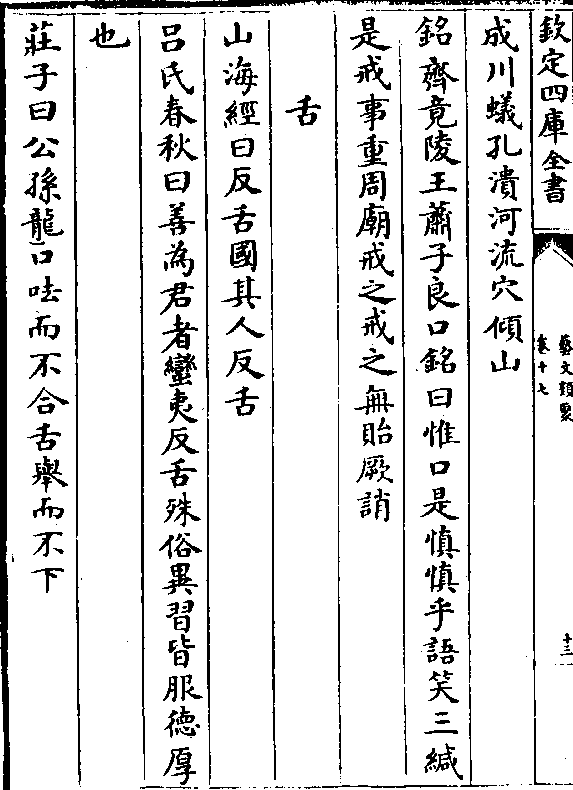 欽定四庫全書
藝文類聚
卷十七
十三
成川蟻孔潰河流穴傾山
銘齊竟陵王蕭子良口銘曰惟口是慎慎乎語笑三緘
是戒事重周廟戒之戒之無貽厥誚
舌
山海經曰反舌國其人反舌
呂氏春秋曰善為君者蠻夷反舌殊俗異習皆服德厚
也
莊子曰公孫龍口呿而不合舌舉而不下